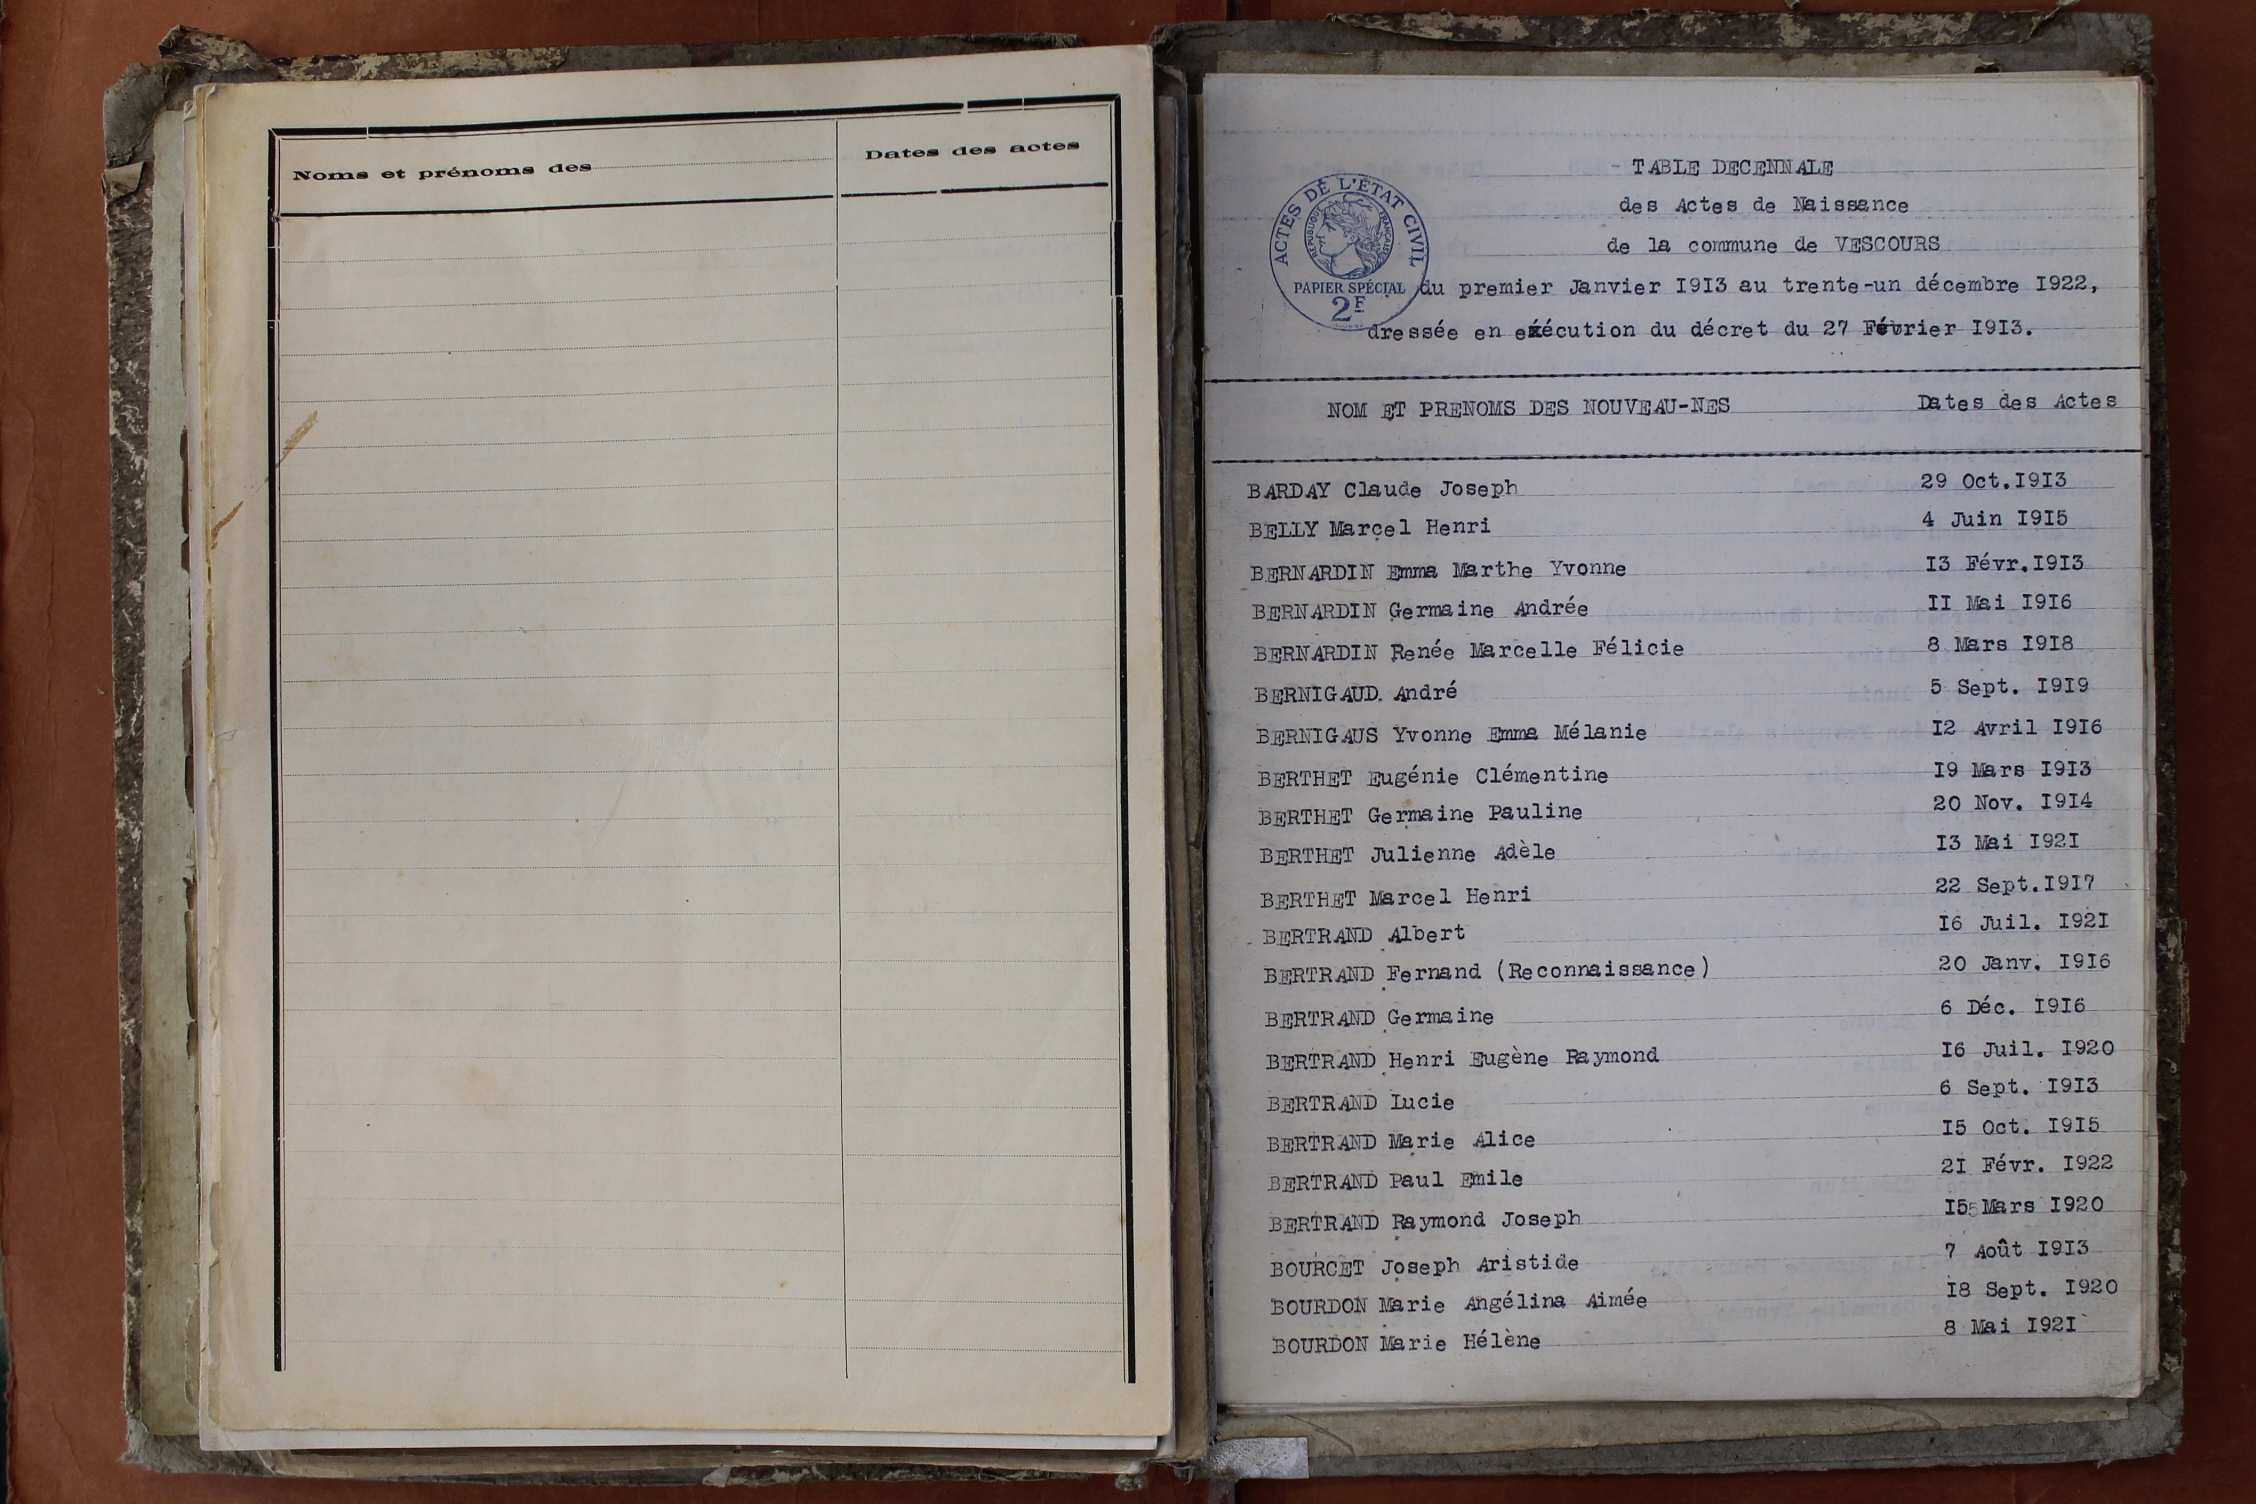 Noms et prénoms des
Dates des actes
- TABLE DECENNALE
des Actes de Naissance
de la commune de VESCOURS
ACTES DE L'ÉTAT CIVIL
REPUBLIQUE FRANÇAISE
PAPIER SPÉCIAL
2F
du premier Janvier I9I3 au trente-un décembre I922,
dressée en exécution du décret du 27 Février I9I3.
NOM ET PRENOMS DES NOUVEAU-NES Dates des Actes
BARDAY Claude Joseph 29 Oct.I9I3
BELLY Marcel Henri 4 Juin I9I5
BERNARDIN Emma Marthe Yvonne I3 Févr.I9I3
BERNARDIN Germaine Andrée II Mai I9I6
BERNARDIN Renée Marcelle Félicie 8 Mars I9I8
BERNIGAUD. André 5 Sept. I9I9
BERNIGAUS Yvonne Emma Mélanie I2 Avril I9I6
BERTHET Eugénie Clémentine I9 Mars I9I3
BERTHET Germaine Pauline 20 Nov. I9I4
BERTHET Julienne Adèle I3 Mai I92I
BERTHET Marcel Henri 22 Sept.I9I7
BERTRAND Albert I6 Juil. I92I
BERTRAND Fernand (Reconnaissance) 20 Janv. I9I6
BERTRAND Germaine 6 Déc. I9I6
BERTRAND Henri Eugène Raymond I6 Juil. I920
BERTRAND Lucie 6 Sept. I9I3
BERTRAND Marie Alice I5 Oct. I9I5
BERTRAND Paul Emile 2I Févr. I922
BERTRAND Raymond Joseph I55Mars I920
BOURCET Joseph Aristide 7 Août I9I3
BOURDON Marie Angélina Aimée I8 Sept. I920
BOURDON Marie Hélène 8 Mai I92I